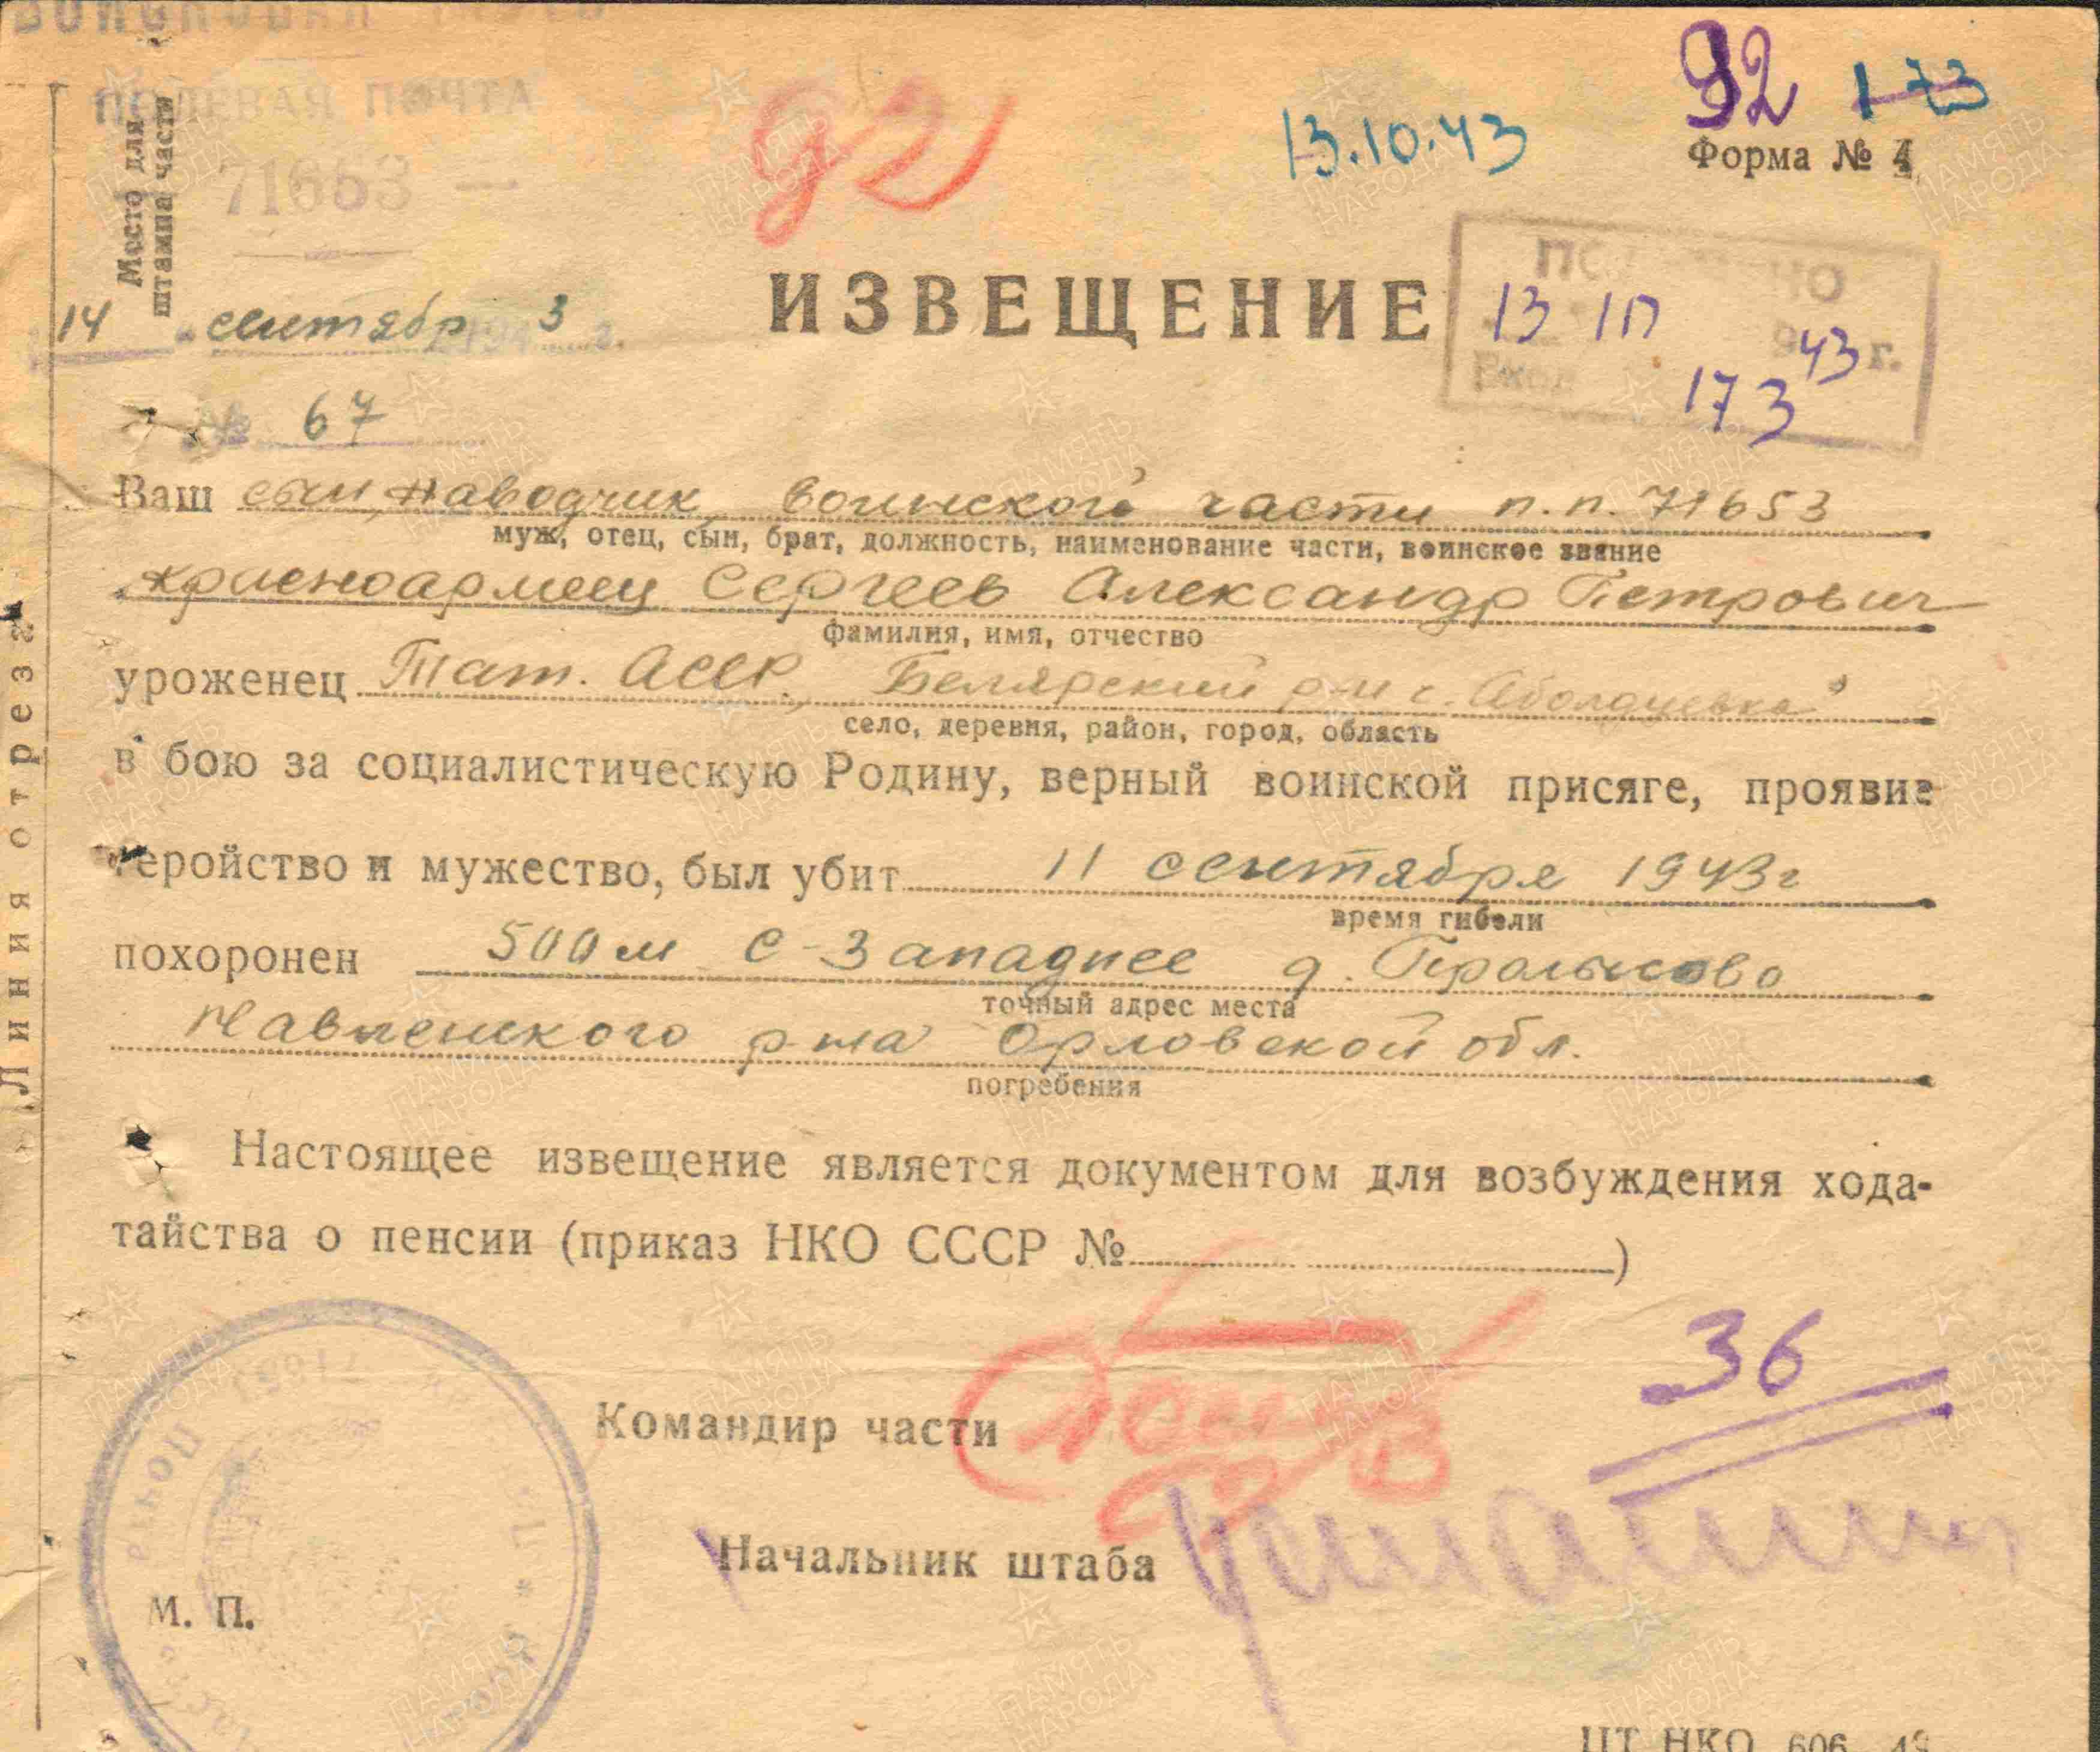 ПОЛЕВАЯ ПОЧТА
71653
Место для
штампа части
92
13.10.43
92 173
Форма № 4
ИЗВЕЩЕНИЕ
14 сентябр 1943 г.
13 43 г.
Вход 173
№ 67
Ваш сын, наводчик, воинской части п.п. 71653
муж, отец, сын, брат, должность, наименование части, воинское звание
красноармеец Сергеев Александр Петрович
фамилия, имя, отчество
уроженец Тат. АССР, Белярский р-н с.
село, деревня, район, город, область
в бою за социалистическую Родину, верный воинской присяге, проявив
геройство и мужество, был убит 11 сентября 1943 г
время гибели
похоронен 500 м С-Западнее д.
точный адрес места
Навленского р-на Орловской обл.
погребения
Настоящее извещение является документом для возбуждения хода-
тайства о пенсии (приказ НКО СССР № )
36
Командир части
Начальник штаба
М. П.
Линия отреза
ЦТ НКО 606
ПАМЯТЬ НАРОДА